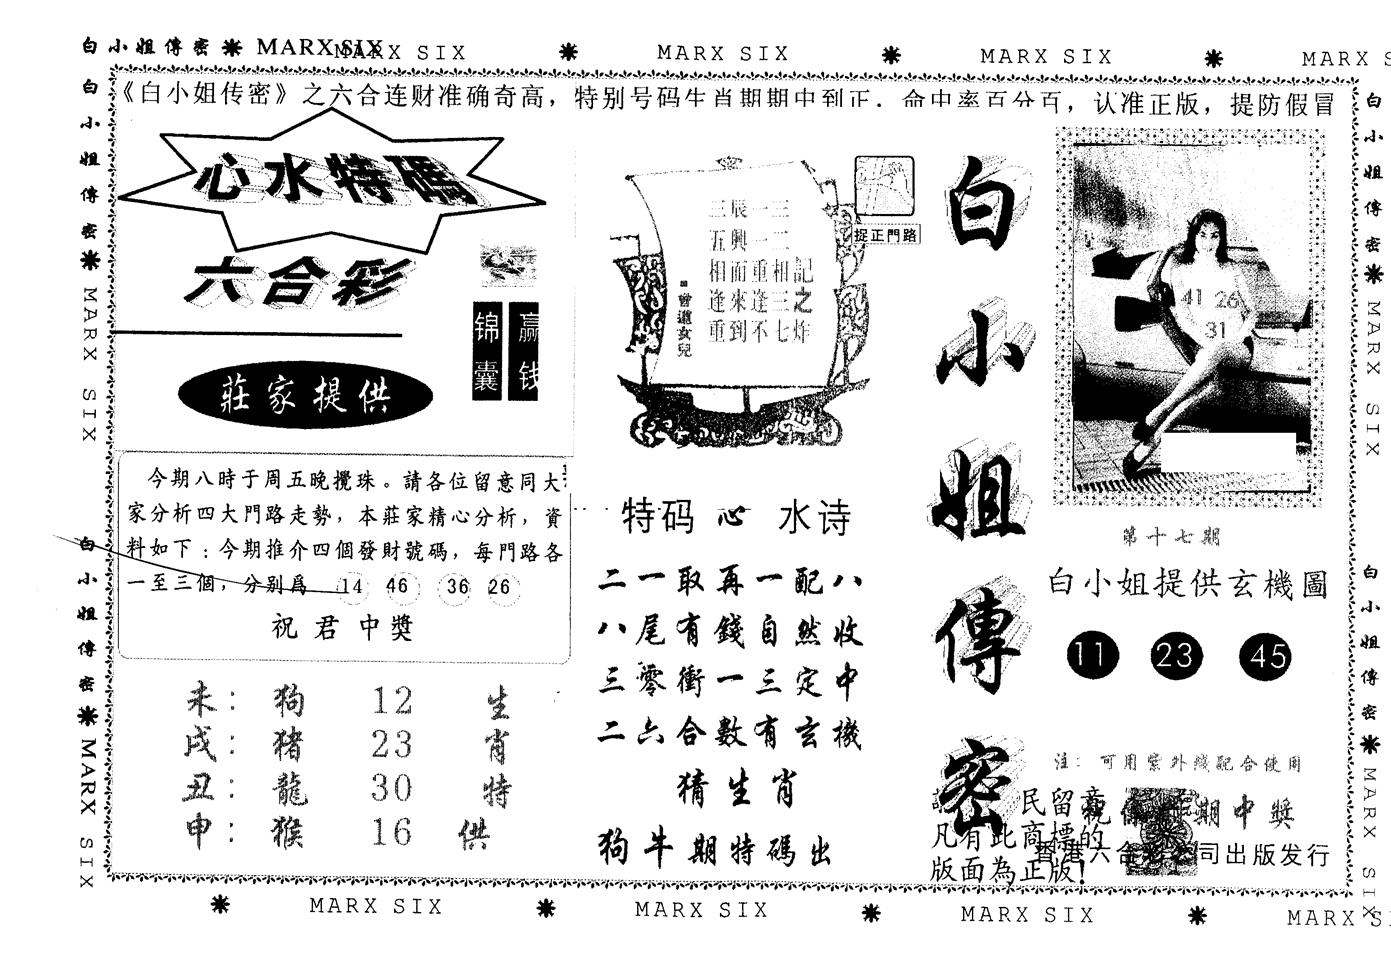 白小姐傳密 MARX SIX MARX SIX MARX SIX MARX SIX
《白小姐传密》之六合连财准确奇高，特别号码生肖期期中到正．命中率百分百，认准正版，提防假冒
白小姐傳密 MARX SIX
白小姐傳密 MARX SIX
心水特碼
六合彩
锦囊
赢钱
莊家提供
今期八時于周五晚攪珠。請各位留意同大
家分析四大門路走勢，本莊家精心分析，資
料如下：今期推介四個發財號碼，每門路各
一至三個，分别爲 14 46 36 26
祝君中獎
未： 狗 12 生
戌： 猪 23 肖
丑： 龍 30 特
申： 猴 16 供
捉正門路
三辰一三
五興一二
相而重相記
逢來逢三之
重到不七炸
曾道女兒
特码 心 水诗
二一取再一配八
八尾有錢自然收
三零衝一三定中
二六合數有玄機
猜生肖
狗牛期特碼出
白小姐傳密
民留意
凡有此商標的
版面為正版！
41 26
31
第十七期
白小姐提供玄機圖
11 23 45
注：可用紫外綫配合使用
祝 期中獎
香港六合 司出版发行
白小姐傳密 MARX SIX
白小姐傳密 MARX SIX
MARX SIX MARX SIX MARX SIX MARX